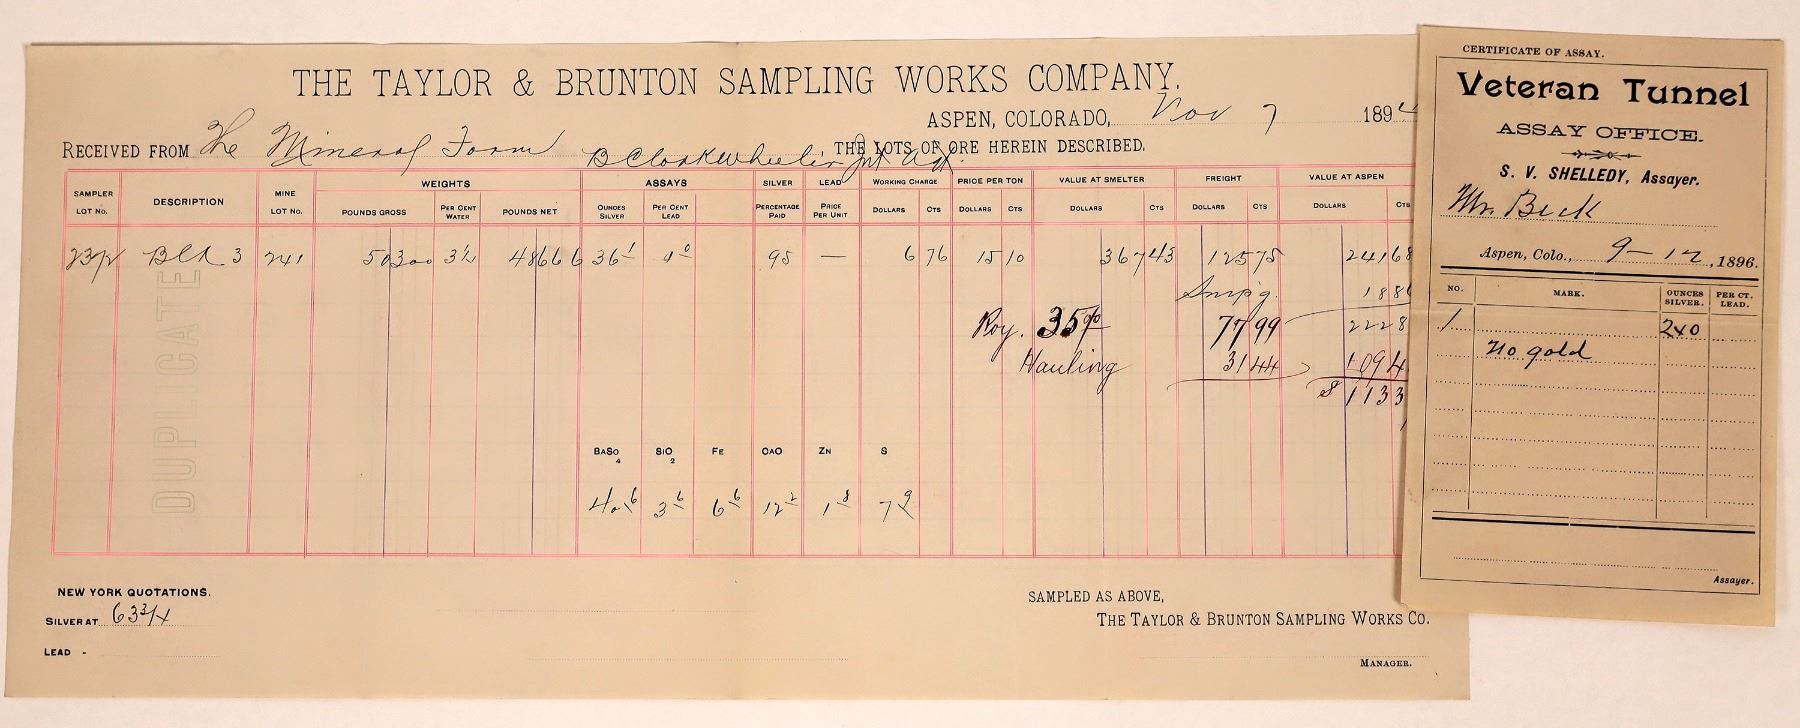 THE TAYLOR & BRUNTON SAMPLING WORKS COMPANY.
ASPEN, COLORADO, Nov 7 1894
RECEIVED FROM The Mineral Farm B Clark Wheeler THE LOTS OF ORE HEREIN DESCRIBED.
SAMPLER LOT NO. DESCRIPTION MINE LOT NO. WEIGHTS ASSAYS SILVER LEAD WORKING CHARGE PRICE PER TON VALUE AT SMELTER FREIGHT VALUE AT ASPEN
POUNDS GROSS PER CENT WATER POUNDS NET OUNCES SILVER PER CENT LEAD PERCENTAGE PAID PRICE PER UNIT DOLLARS CTS DOLLARS CTS DOLLARS CTS DOLLARS CTS DOLLARS CTS
3 241 50300 3½ 48666 36 1 95 — 6 76 15 10 367 43 125 75 241 68
Smp'g. 188
Roy. 35% 77 99 222 8
Hauling 31 44 109 4
$ 113 3
DUPLICATE
BaSO4 SiO2 FE CAO ZN S
40 6 3 6 6 6 12 2 1 8 7 9
NEW YORK QUOTATIONS.
SILVER AT 63 3/4
LEAD -
SAMPLED AS ABOVE,
THE TAYLOR & BRUNTON SAMPLING WORKS CO.
MANAGER.
CERTIFICATE OF ASSAY.
Veteran Tunnel
ASSAY OFFICE.
S. V. SHELLEDY, Assayer.
Mr. Beck
Aspen, Colo., 9-12, 1896.
NO. MARK. OUNCES SILVER. PER CT. LEAD.
1 240
No gold
Assayer.